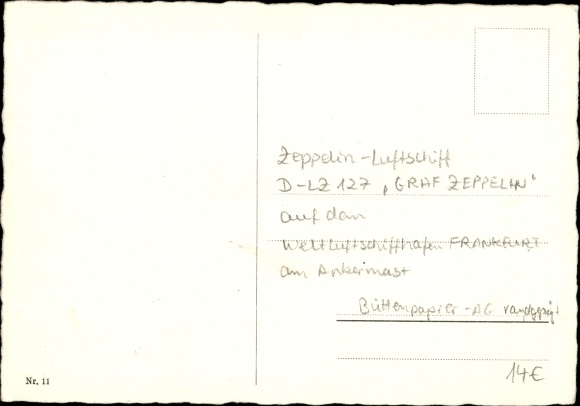 Zeppelin-Luftschiff
D-LZ 127 „GRAF ZEPPELIN"
auf dem
Weltluftschiffhafen FRANKFURT
am Ankermast
Büttenpapier-AG
14€
Nr. 11